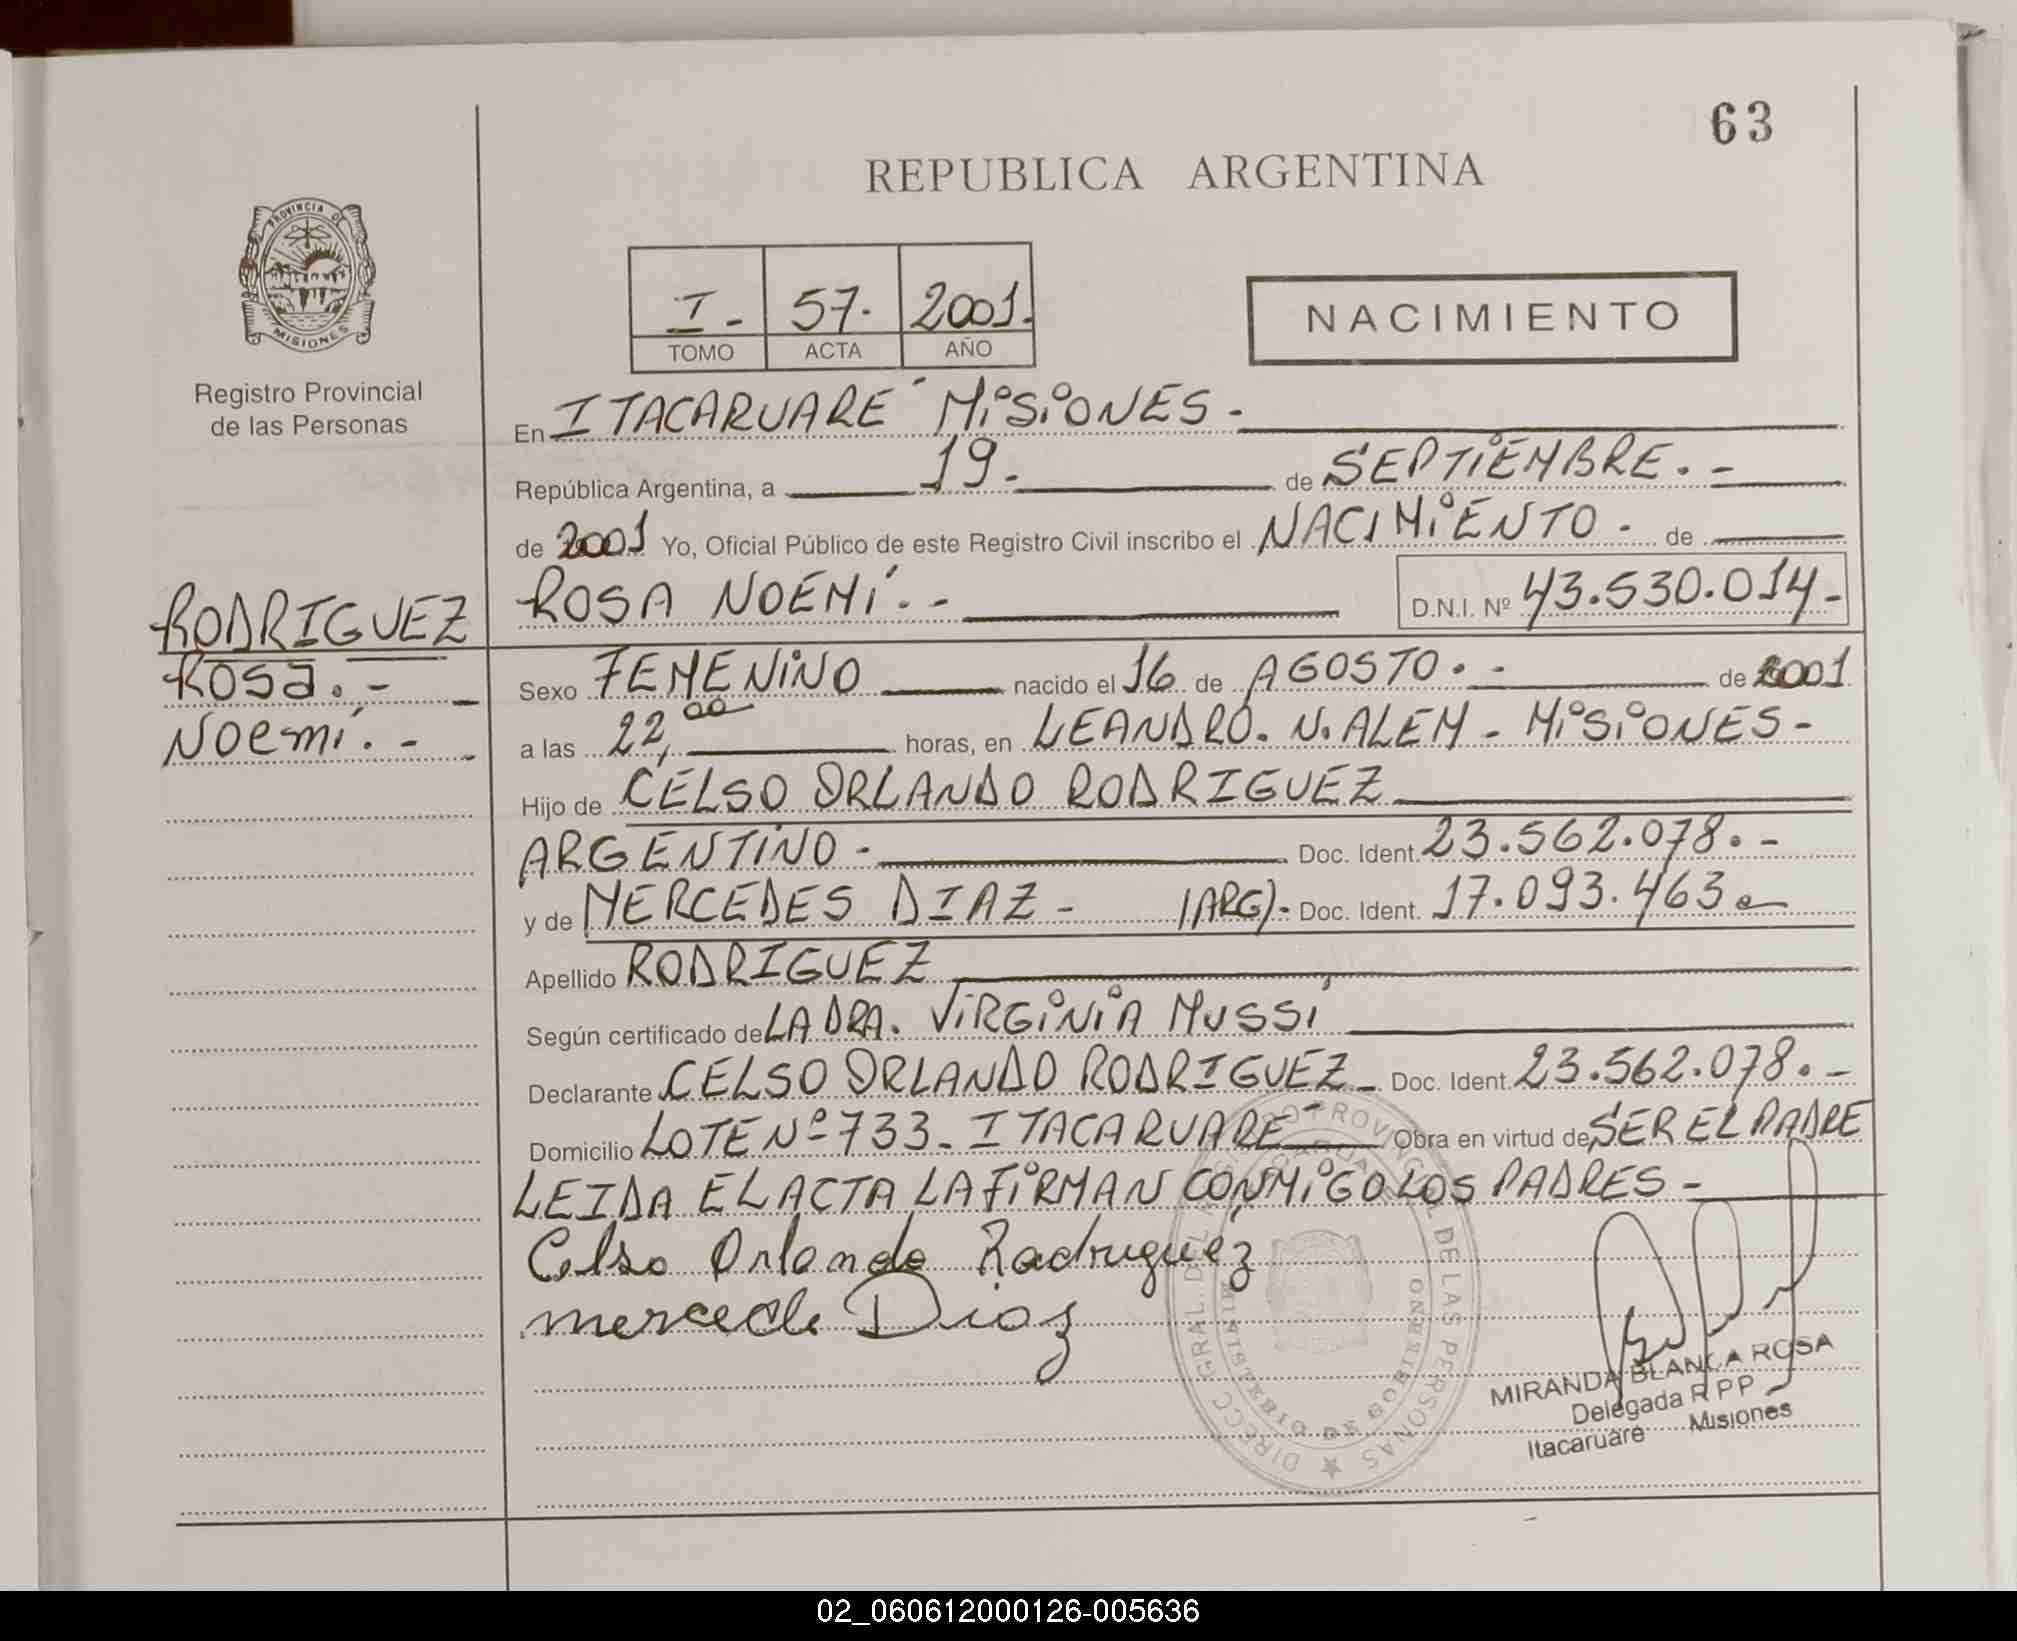 63
REPUBLICA ARGENTINA
PROVINCIA DE
MISIONES
Registro Provincial
de las Personas
I - 57. 2001.
TOMO ACTA AÑO
NACIMIENTO
En ITACARUARE´ MiSiONES -
República Argentina, a 19. - de SEPTiEMBRE. -
de 2001 Yo, Oficial Público de este Registro Civil inscribo el NACIMiENTO - de
RODRIGUEZ
Rosa. -
Noemí. -
ROSA NOEMí. - D.N.I. Nº 43.530.014 -
Sexo FEMENiNO nacido el 16 de AGOSTO. - de 2001
a las 22,00 horas, en LEANDRO. N. ALEM - MiSiONES -
Hijo de CELSO ORLANDO RODRIGUEZ
ARGENTiNO - Doc. Ident. 23.562.078. -
y de MERCEDES DIAZ - (ARG). Doc. Ident. 17.093.463
Apellido RODRIGUEZ
Según certificado de LA DRA. ViRGiNiA MUSSi
Declarante CELSO ORLANDO RODRIGUEZ - Doc. Ident. 23.562.078. -
Domicilio LOTE Nº 733 - ITACARUARE´ Obra en virtud de SER EL PADRE
LEIDA EL ACTA LA FiRMAN CONMiGO LOS PADRES -
Celso Orlando Radruguez
mercede Diaz
DIRECC. GRAL. DEL REGISTRO PROVINCIAL DE LAS PERSONAS
MINISTERIO DE GOBIERNO
MIRANDA BLANCA ROSA
Delegada R P P
Itacaruare Misiones
02_060612000126-005636